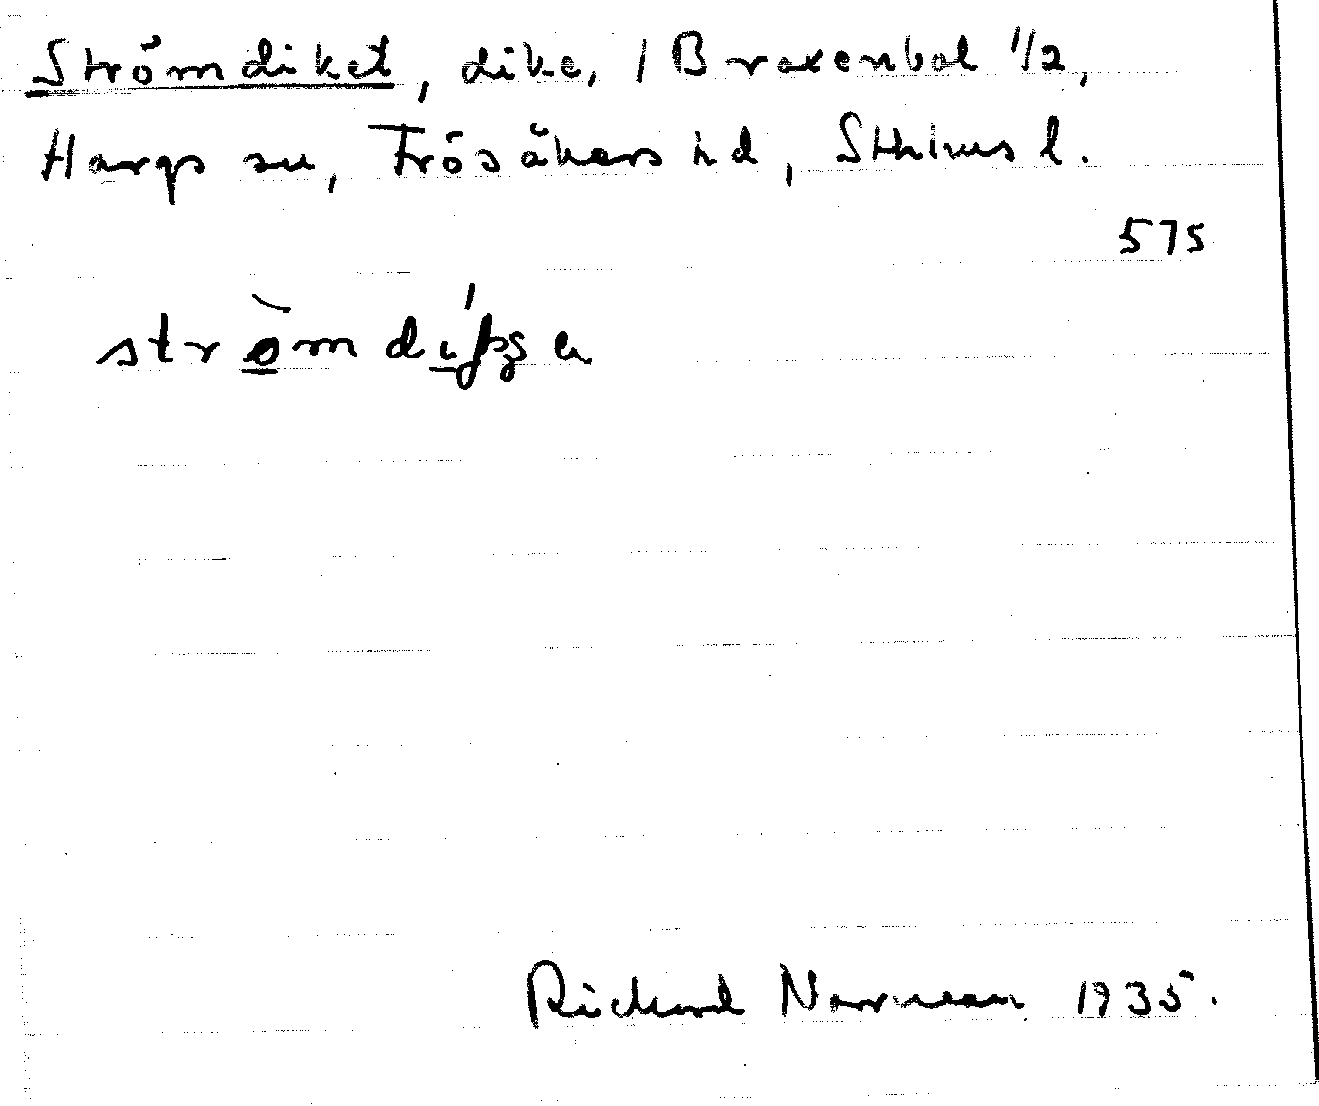 Strömdiket, dike, / Braxenbol 1/2,
Hargs sn, Frösåkers hd, Sthlms l.
575
Richard Norrman 1935.